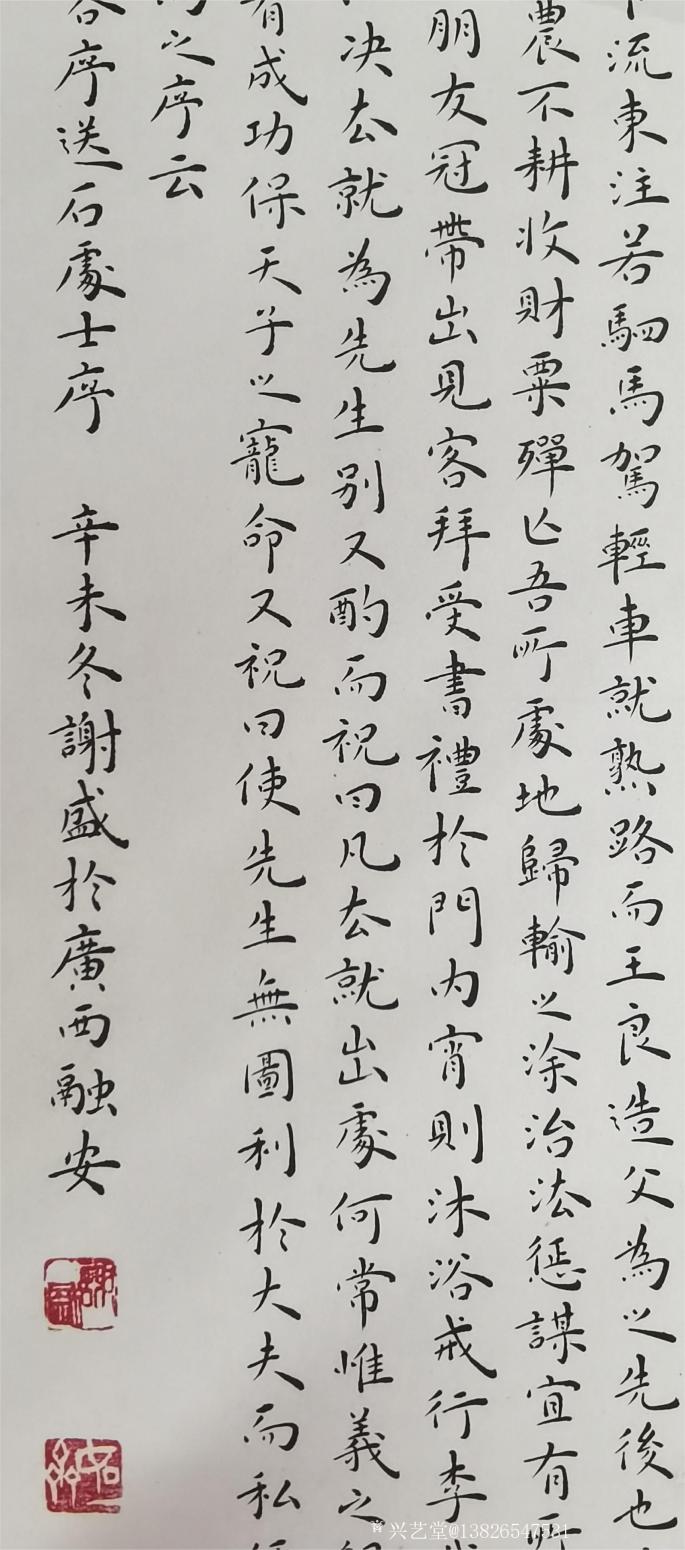 流東注若駟馬駕輕車就熟路而王良造父為之先後也
農不耕收財粟殫亡吾所處地歸輸之涂治法懲謀宜有所
朋友冠帶出見客拜受書禮於門內宵則沐浴戒行李
決去就為先生別又酌而祝曰凡去就出處何常惟義之
有成功保天子之寵命又祝曰使先生無圖利於大夫而私
之序云
序送石處士序 辛未冬謝盛於廣西融安
兴艺堂@13826547531